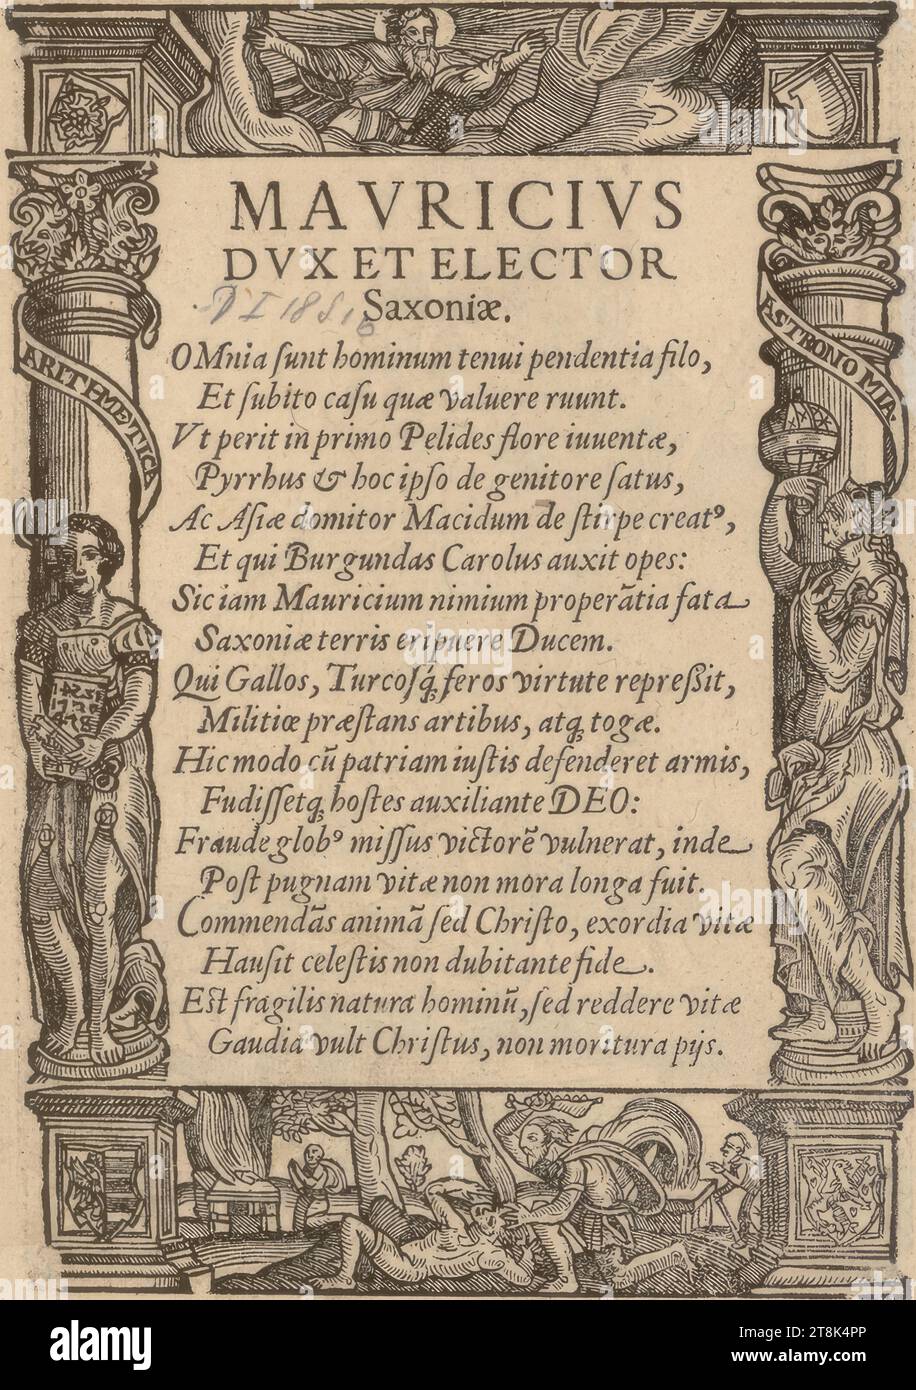 MAVRICIVS
DVX ET ELECTOR
Saxoniæ.
ARITHMETICA
ASTRONOMIA
OMnia ſunt hominum tenui pendentia filo,
Et ſubito caſu quæ valuere ruunt.
Vt perit in primo Pelides flore iuuentæ,
Pyrrhus & hoc ipſo de genitore ſatus,
Ac Aſiæ domitor Macidum de ſtirpe creatꝰ,
Et qui Burgundas Carolus auxit opes:
Sic iam Mauricium nimium properãtia fata
Saxoniæ terris eripuere Ducem.
Qui Gallos, Turcoſq́; feros virtute repreßit,
Militiæ præſtans artibus, atq́; togæ.
Hic modo cũ patriam iuſtis defenderet armis,
Fudiſſetq́; hoſtes auxiliante DEO:
Fraude globꝰ miſſus victorẽ vulnerat, inde
Poſt pugnam vitæ non mora longa fuit.
Commendãs animã ſed Chriſto, exordia vitæ
Hauſit celeſtis non dubitante fide.
Eſt fragilis natura hominũ, ſed reddere vitæ
Gaudia vult Chriſtus, non moritura pijs.
alamy
Image ID: 2T8K4PP
www.alamy.com